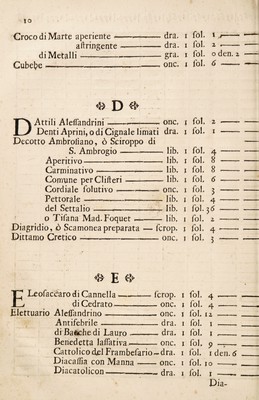 10
Croco di Marte aperiente — dra. 1 sol. 1
astringente — dra. 1 sol. 2
di Metalli — gra. 1 sol. 0 den. 2
Cubebe — onc. 1 sol. 6
D
DAttili Alessandrini — onc. 1 sol. 2
Denti Aprini, o di Cignale limati dra. 1 sol. 1
Decotto Ambrosiano, ò Sciroppo di
S. Ambrogio — lib. 1 sol. 4
Aperitivo — lib. 1 sol. 8
Carminativo — lib. 1 sol. 8
Comune per Clisteri — lib. 1 sol. 6
Cordiale solutivo — onc. 1 sol. 3
Pettorale — lib. 1 sol. 4
del Settalio — lib. 1 sol. 36
o Tisana Mad. Foquet — lib. 1 sol. 2
Diagridio, ò Scamonea preparata — scrop. 1 sol. 4
Dittamo Cretico — onc. 1 sol. 3
E
ELeosaccaro di Cannella — scrop. 1 sol. 4
di Cedrato — onc. 1 sol. 4
Elettuario Alessandrino — onc. 1 sol. 12
Antifebrile — dra. 1 sol. 1
di Bacche di Lauro — dra. 1 sol. 1
Benedetta lassativa — onc. 1 sol. 9
Cattolico del Frambesario — dra. 1 den. 6
Diacassia con Manna — onc. 1 sol. 10
Diacatolicon — dra. 1 sol. 1
Dia-